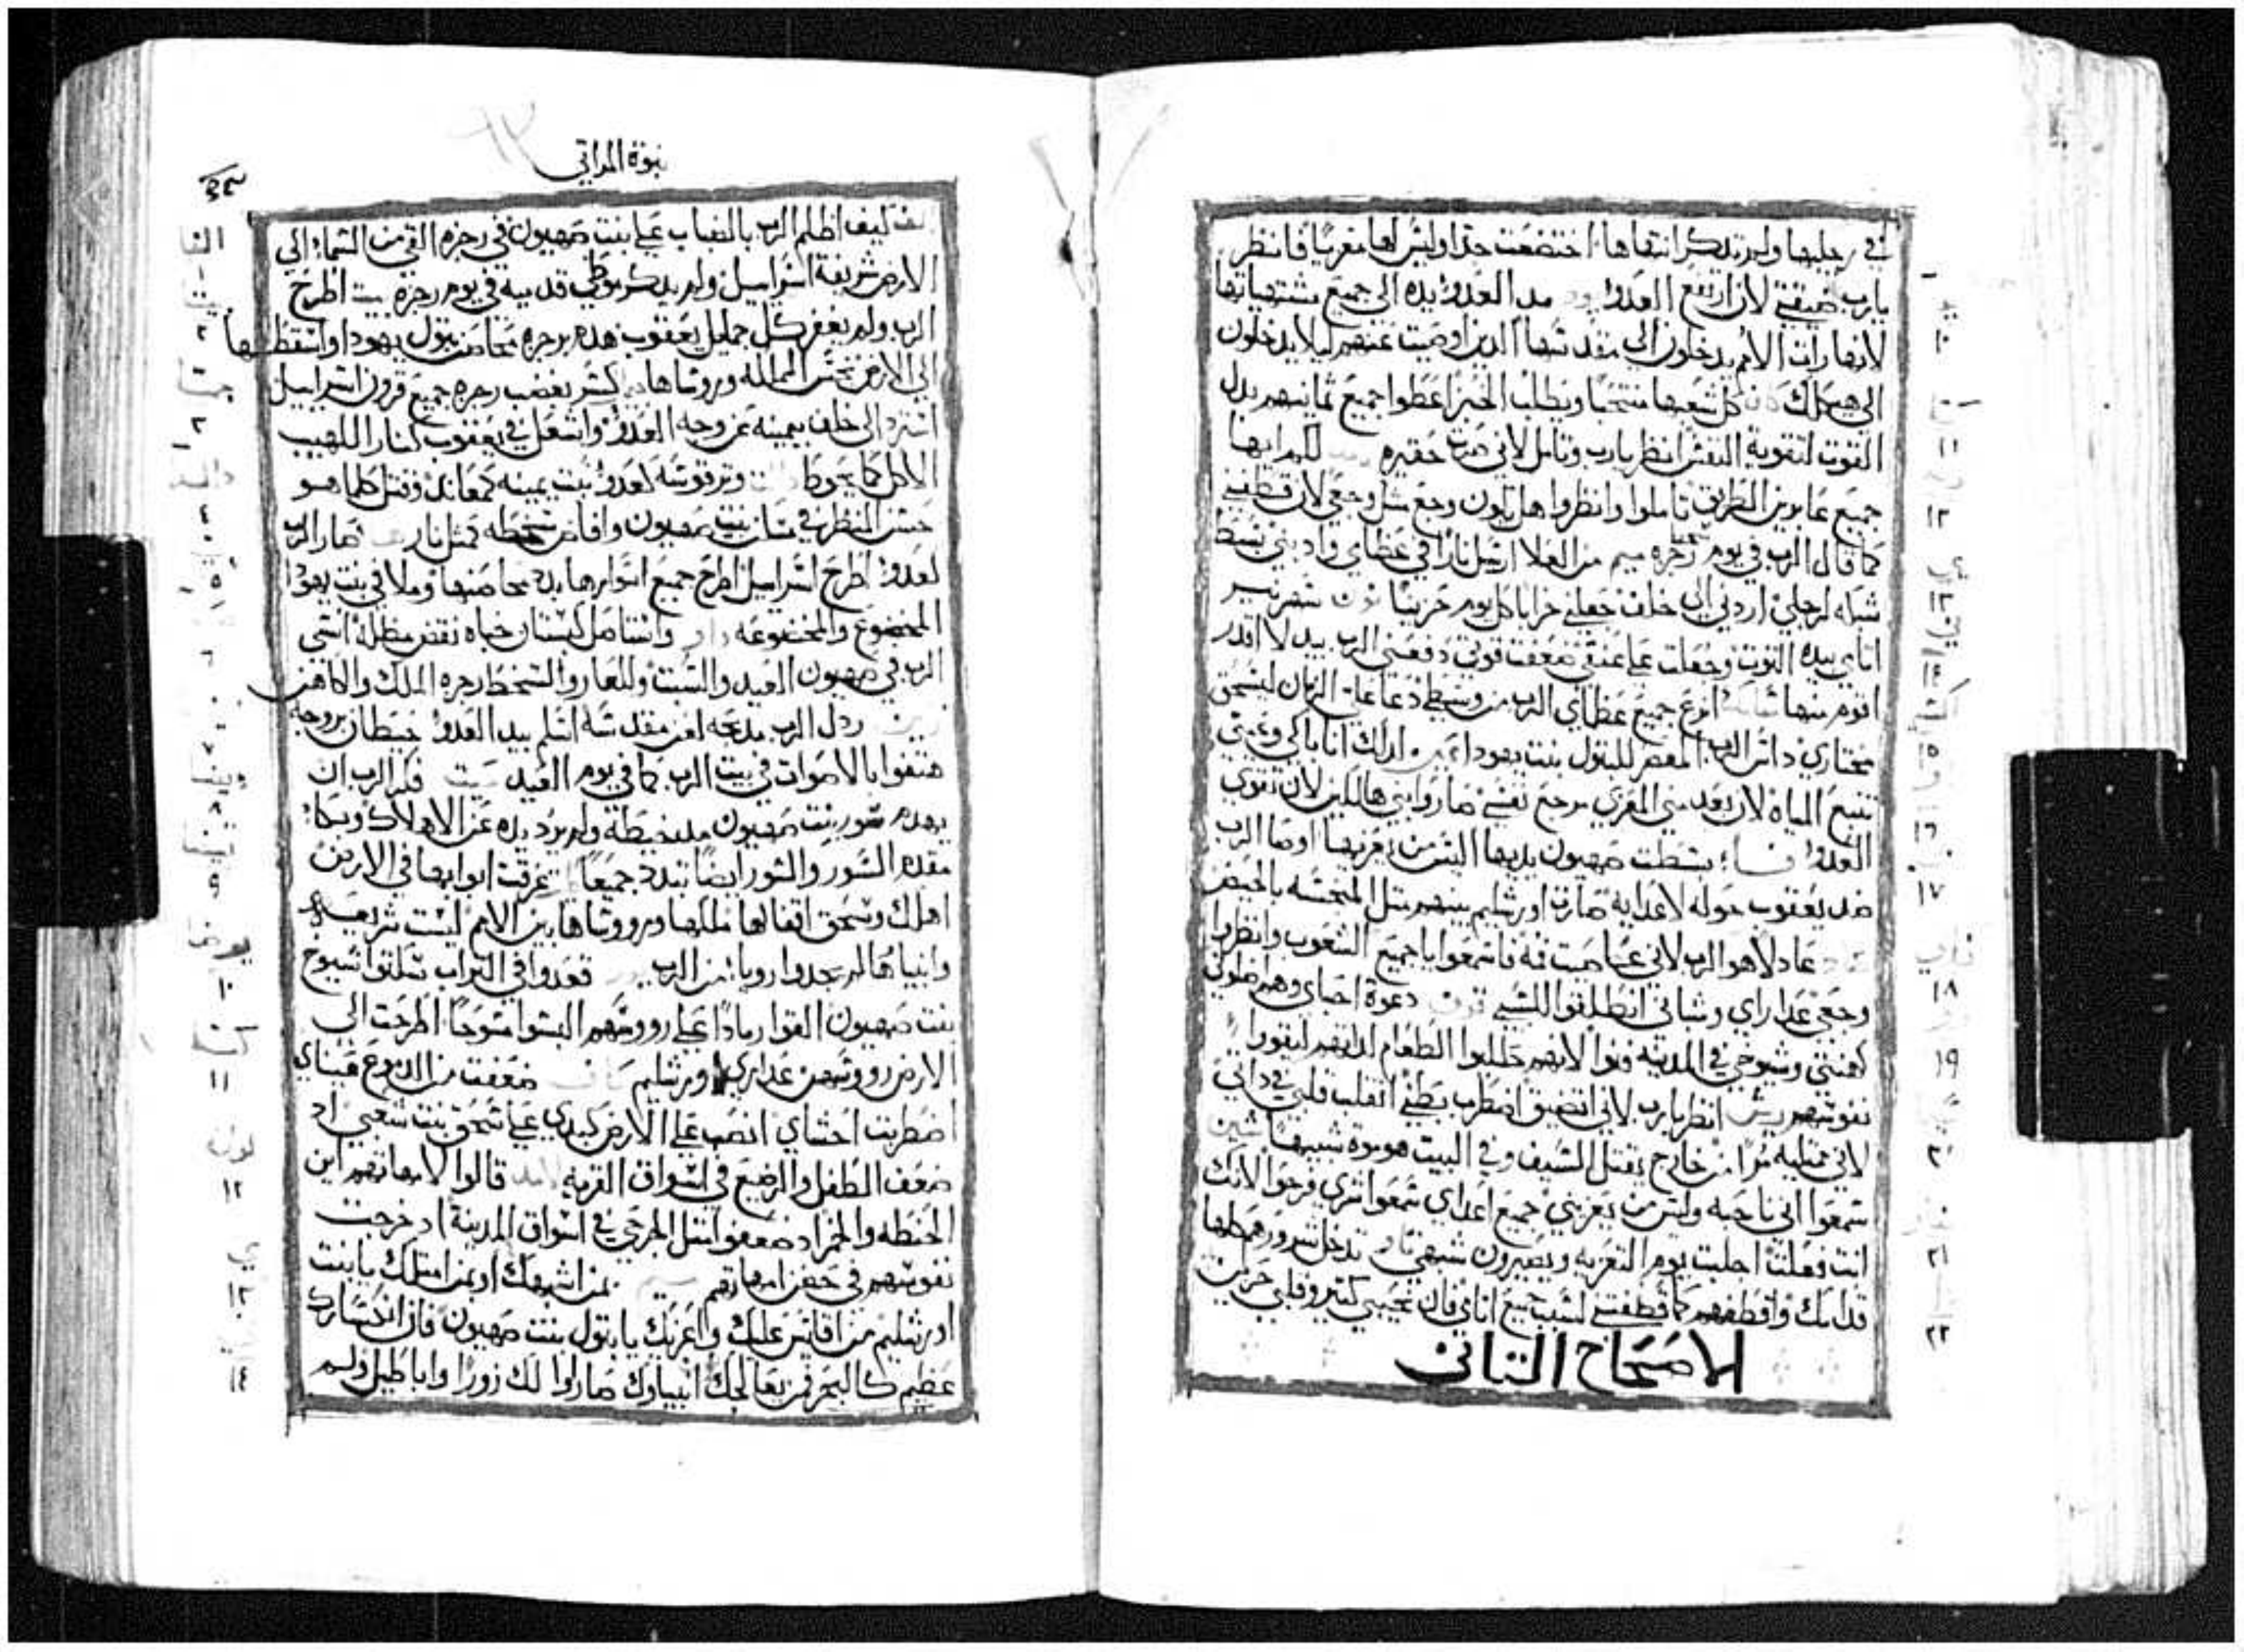 في رجليها ولم تدكر انتهاها اختضعت جدا وليس لها معزيا فانظر
يارب ضيقتي لان ارتفع العدو يود مد العدو يده الى جميع مشتهياتها
لانها رات الامم يدخلون الى مقدسها الدين اوصيت عنهم ليلا يدخلون
الى هيكلك كل شعبها منتحبا ويطلب الخبز اعطوا جميع تمانيهم بدل
القوت لتقوية النفس انظر يارب وتامل لاني صرت حقيره لكم ايها
جميع عابرين الطريق تاملوا وانظروا هل يكون وجع مثل وجعي لان قطفني
كما قال الرب في يوم رجزه ميم من العلا ارسل نارا في عظامي وادبني بسط
شبكه لرجلي اردني الى خلف جعلني خرابا كل يوم حزينا نون شهر نير
اتامي بيده التوت وجعلت على عنقي ضعفت قوتي دفعني الرب بيد لا اقدر
اقوم منها انزع جميع عظماي الرب من وسطي دعا علي الزمان ليسحق
مختاري داس الرب المعصر للبتول بنت يهودا لدلك انا باكي وعيني
تنبع المياه لان بعد مني المعزي مرجع نفسي صاروا بني هالكين لان تقوى
العدو فا بسطت صهيون يديها اليس من يعزيها اوصا الرب
ضد يعقوب حوله لاعدايه صارت اورشليم بينهم مثل المنجسه بالحيض
عادلا هو الرب لاني عصيت فه فاسمعوا يا جميع الشعوب وانظروا
وجعي عداراي وشباني انطلقوا للسبي دعوة احباي وهم خلوني
كهنتي وشيوخي في المدينه فنوا لانهم طلبوا الطعام لداتهم ليقووا
نفوسهم ريش انظر يارب لاني اتضيق اضطرب بطني انقلب قلبي في داتي
لاني ممتليه مرا من خارج يقتل السيف وفي البيت هو موت شبيها شين
سمعوا اني ناحبه وليس من يعزيني جميع اعداي سمعوا شري فرحوا لانك
انت فعلت اجلبت يوم التعزيه ويصيرون شبهي تاو تدخل شرورهم كلها
قدامك واقطفهم كما قطفتني لسبب جميع اتامي فان نحيبي كتير وقلبي حزين
الاصحاح التاني
١٠
١١
١٢
١٣
١٤
١٥
١٦
١٧
١٨
١٩
٢٠
٢١
٢٢
نبوة المراتي
كيف اظلم الرب بالضباب على بنت صهيون في رجزه القي من السماء الى
الارض شريفة اسراييل ولم يدكر موطي قدميه في يوم رجزه بيت اطرح
الرب ولم يغفر كل جمايل يعقوب هدم برجزه محاصن بتول يهودا واسقطها
الى الارض نجس المملكه وروساها كسر بغضب رجزه جميع قرون اسراييل
استرد الى خلف يمينه عن وجه العدو واشعل في يعقوب كنار اللهيب
الاكل كما يحوط وترقوسه كعدو تبت يمينه كمعاند وقتل كلما هو
حسن المنظر في مسكن بنت صهيون وافاض سخطه كمثل نار صار الرب
كعدو اطرح اسراييل اطرح جميع اسوارها بدد محاصنها وملا في بنت يهودا
المخضوع والمخضوعه واستاصل كبستان خباه نقض مظلته انسى
الرب في صهيون العيد والسبت وللعار والسخط رجزه الملك والكاهن
زين ردل الرب مدبحه لعن مقدسه اسلم بيد العدو حيطان بروجه
هتفوا بالاصوات في بيت الرب كما في يوم العيد حيت فكر الرب ان
يهدم سور بنت صهيون مد خيطه ولم يرد يده عن الاهلاك وبكا
مقدم السور والسور ايضا تبدد جميعا غرقت ابوابها في الارض
اهلك وسحق اقفالها ملكها وروساها بين الامم ليست شريعه
وانبياها لم يجدوا رويا من الرب يود قعدوا في التراب سكتوا شيوخ
بنت صهيون القوا رمادا على رووسهم البسوا مسوحا اطرحت الى
الارض رووسهن عدارى اورشليم كاف ضعفت من الدموع عيناي
اضطربت احشاي انصب على الارض كبدي على سحق بنت شعبي اد
ضعف الطفل والرضيع في اسواق القريه لامد قالوا لامهاتهم اين
الحنطه والخمر اد ضعفوا متل الجرحى في اسواق المدينة اد خرجت
نفوسهم في حضن امهاتهم ميم بمن اشبهك او بمن امتلك يا بنت
اورشليم من اقايس عليك واعزيك يا بتول بنت صهيون فان انكسارك
عظيم كالبحر فمن يعالجك انبياوك صاروا لك زورا واباطيل ولم
١
٢
٣
٤
٥
٨
٩
١٠
١١
١٢
١٣
١٤